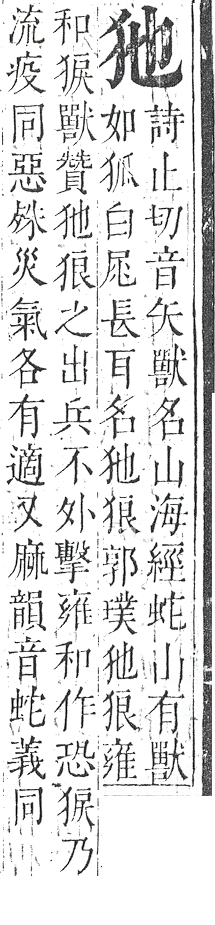 㸱
詩止切音矢獸名山海經蛇山有獸
如狐白尾長耳名㸱狼郭璞㸱狼雍
和𤟑獸贊㸱狼之出兵不外擊雍和作恐𤟑乃
流疫同惡殊災氣各有適又麻韻音蛇義同